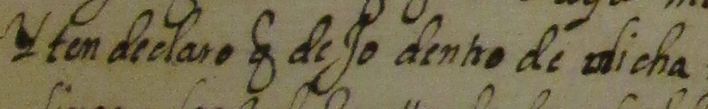 Yten declaro q̃ dejo dentro de dicha